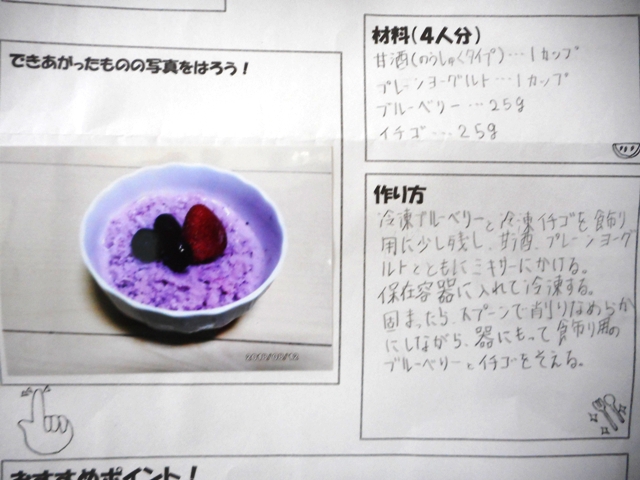 できあがったものの写真をはろう!
材料(4人分)
甘酒(のうしゅくタイプ)…1カップ
プレーンヨーグルト…1カップ
ブルーベリー…25g
イチゴ…25g
作り方
冷凍ブルーベリーと冷凍イチゴを飾り
用に少し残し、甘酒、プレーンヨーグ
ルトとともにミキサーにかける。
保存容器に入れて冷凍する。
固まったら、スプーンで削りなめらか
にしながら、器にもって飾り用の
ブルーベリーとイチゴをそえる。
おすすめポイント!